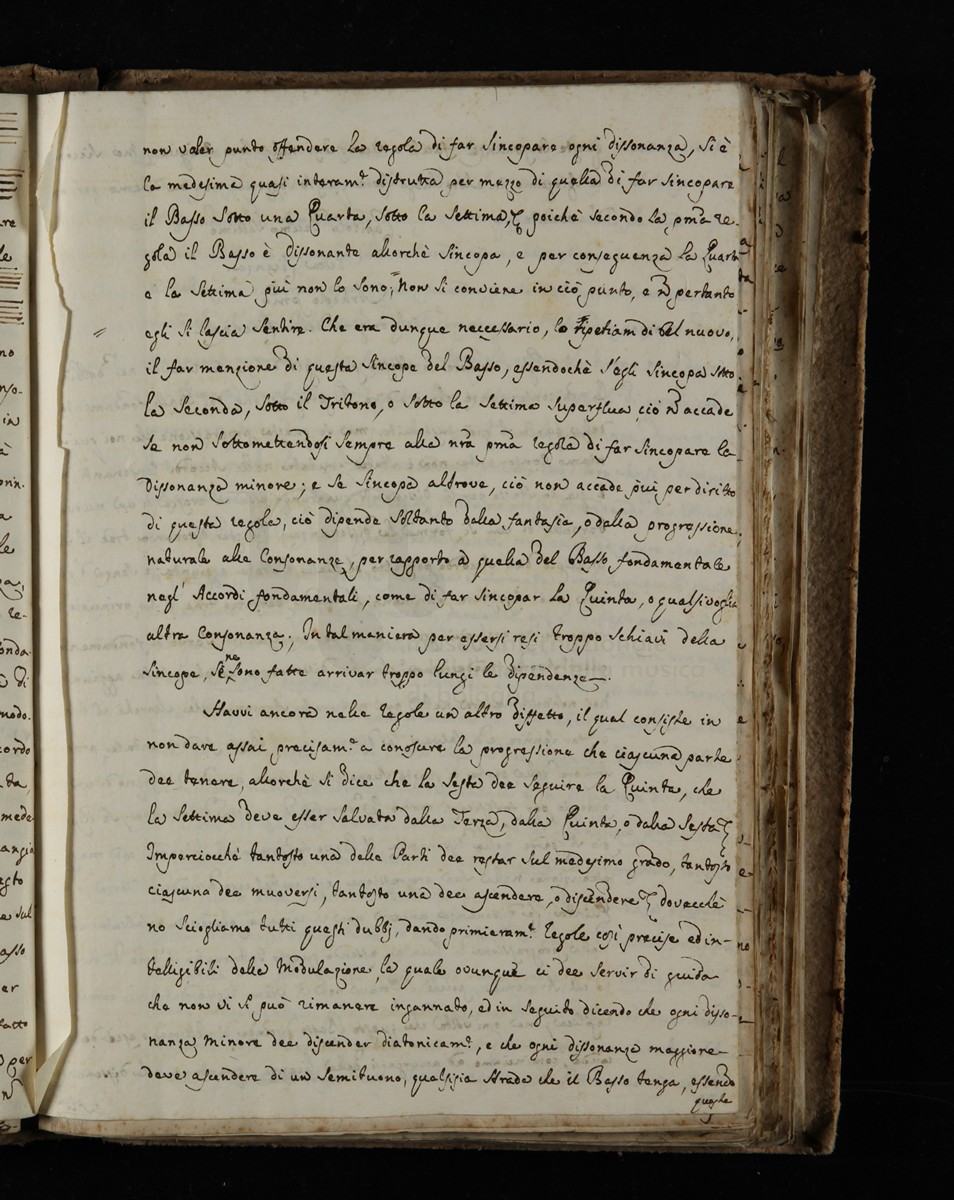 non valer punto offendere la regola di far sincopare ogni dissonanza, si è
la medesima quasi interam.e distrutta per mezzo di quella di far sincopare
il Basso sotto una Quarta, sotto la Settima, & poichè secondo la pma re-
gola il Basso è dissonante allorchè sincopa, e per conseguenza la Quarta
e la Settima più non lo sono; Non si conviene in ciò punto, e pertanto
egli si lascia sentire. Che era dunque neccessario, lo ripetiam di nuovo,
il far menzione di questa sincope del Basso, essendochè s'egli sincopa sotto
la Seconda, sotto il Tritono, o sotto la Settima superflua ciò accade
se non sottomettendosi sempre alla nra pma regola di far sincopare la
Dissonanza minore; e se sincopa altrove, ciò non accade più per diritto
di questa regola, ciò dipende soltanto dalla fantasia, o dalla progressione
naturale alle Consonanze, per rapporto à quella del Basso fondamentale
negl' Accordi fondamentali, come di far sincopar la Quinta, o qualsivoglia
altra Consonanza. In tal maniera per essersi resi troppo schiavi della
sincope, se ne sono fatte arrivar troppo lungi le dipendenze.
Havvi ancora nelle regole un altro diffetto, il qual consiste in
non dare assai precisam.e a conoscere la progressione che ciascuna parte
dee tenere, allorchè si dice che la Sesta dee seguire la Quinta, che
la Settima deve esser salvata dalla Terza, dalla Quinta, o dalla Sesta &
Imperciocchè tantosto una delle Parti dee restar sul medesimo grado, tantosto
ciascuna dee muoversi, tantosto una dee ascendere, o discendere & dovecchè
no sciogliamo tutti questi dubbj, dando primieram.e regole così precise ed in-
telligibili della Modulazione, la quale ovunque ci dee servir di guida
che non vi si può rimanere ingannato, ed in seguito dicendo che ogni disso-
nanza minore dee discender diatonicam.e, e che ogni dissonanza maggiore
deve ascendere di un semituono, qualsisia strada che il Basso tenga, essendo
queste